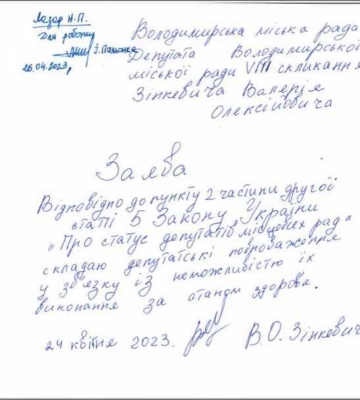 Лазар Н.П.
Для роботи
І. Пальонка
26.04.2023р
Володимирська міська рада
Депутата Володимирської
міської ради VIII скликання
Зінкевича Валерія
Олексійовича
Заява
Відповідно до пункту 2 частини другої
статті 5 Закону України
„Про статус депутатів місцевих рад"
складаю депутатські повноваження
у зв'язку із неможливістю їх
виконання за станом здоров'я.
24 квітня 2023. В.О. Зінкевич